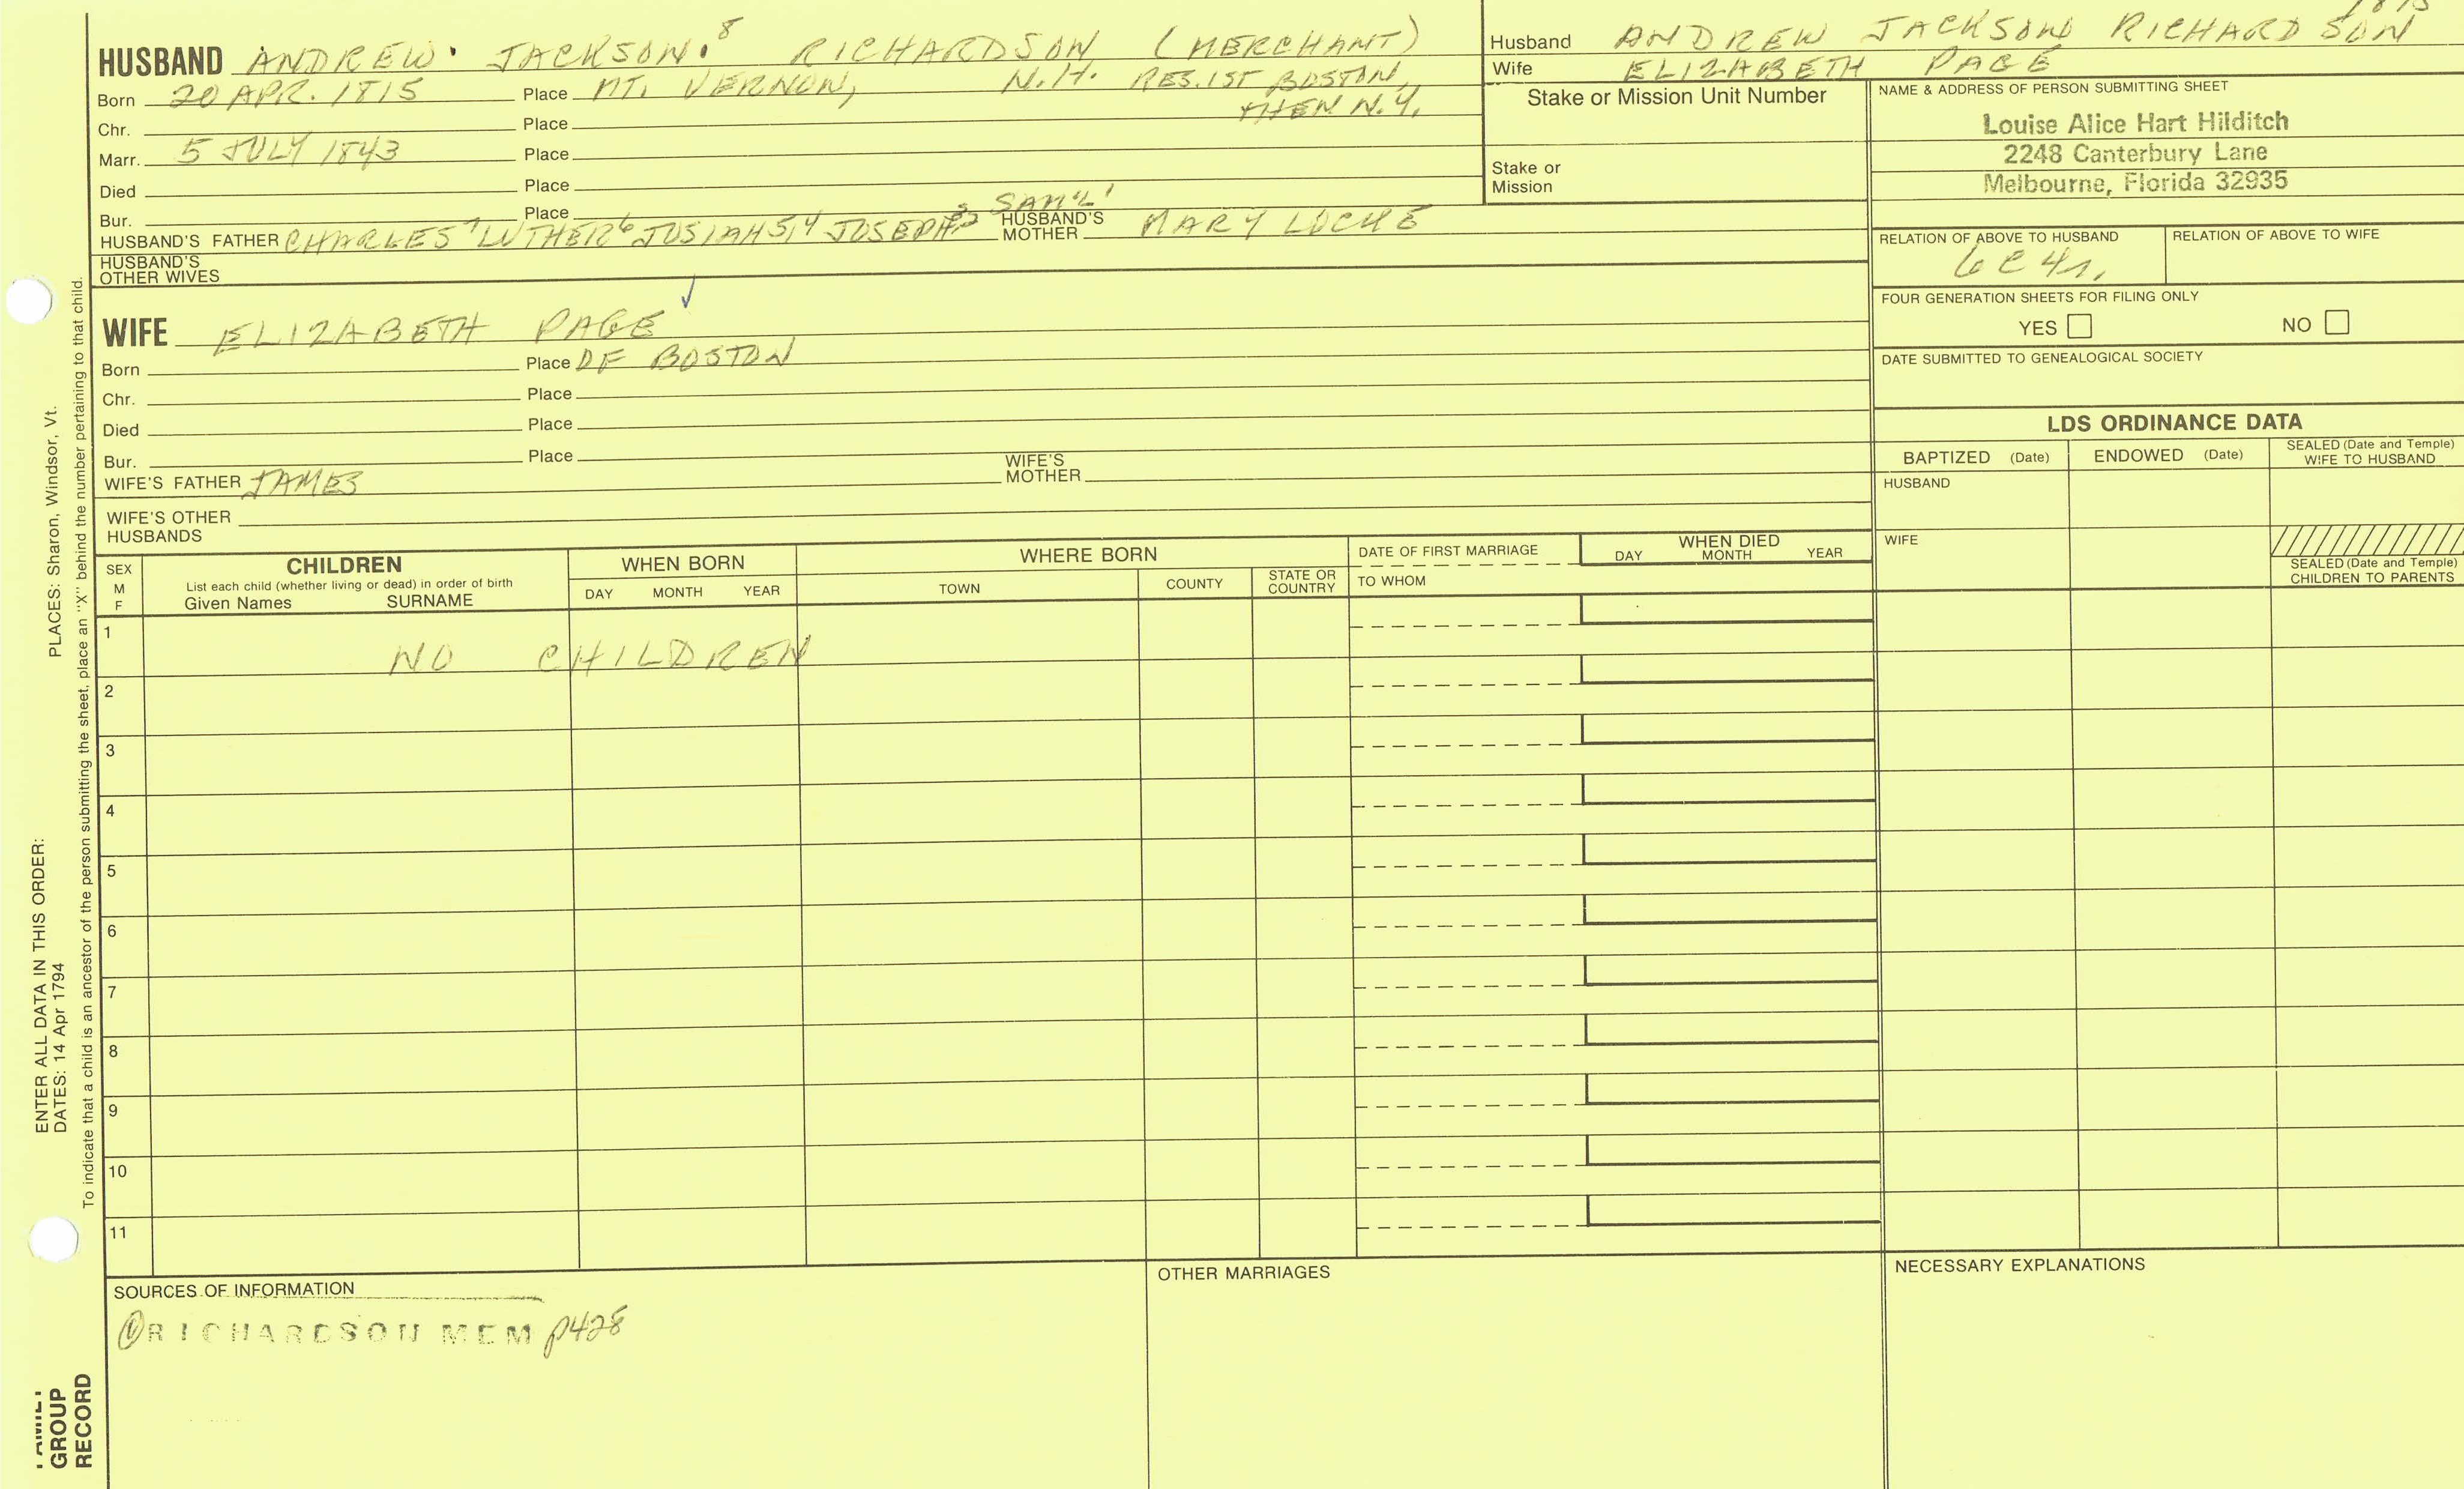 HUSBAND ANDREW JACKSON.8 RICHARDSON (MERCHANT)
Born 20 APR. 1815 Place MT. VERNON, N.H. RES. 1ST BOSTON,
THEN N.Y.
Chr. Place
Marr. 5 JULY 1843 Place
Died Place
Bur. Place
HUSBAND'S FATHER CHARLES7 LUTHER6 JOSIAH5,4 JOSEPH3,2 SAM'L1 HUSBAND'S MOTHER MARY LOCKE
HUSBAND'S
OTHER WIVES
WIFE ELIZABETH PAGE ✓
Born Place OF BOSTON
Chr. Place
Died Place
Bur. Place
WIFE'S FATHER JAMES WIFE'S MOTHER
WIFE'S OTHER
HUSBANDS
1815
Husband ANDREW JACKSON RICHARDSON
Wife ELIZABETH PAGE
Stake or Mission Unit Number
Stake or
Mission
NAME & ADDRESS OF PERSON SUBMITTING SHEET
Louise Alice Hart Hilditch
2248 Canterbury Lane
Melbourne, Florida 32935
RELATION OF ABOVE TO HUSBAND RELATION OF ABOVE TO WIFE
6C4r.
FOUR GENERATION SHEETS FOR FILING ONLY
YES NO
DATE SUBMITTED TO GENEALOGICAL SOCIETY
LDS ORDINANCE DATA
BAPTIZED (Date) ENDOWED (Date) SEALED (Date and Temple)
WIFE TO HUSBAND
HUSBAND
WIFE
SEALED (Date and Temple)
CHILDREN TO PARENTS
SEX
M
F
CHILDREN
List each child (whether living or dead) in order of birth
Given Names SURNAME
WHEN BORN
DAY MONTH YEAR
WHERE BORN
TOWN COUNTY STATE OR
COUNTRY
DATE OF FIRST MARRIAGE
TO WHOM
WHEN DIED
DAY MONTH YEAR
1
NO CHILDREN
2
3
4
5
6
7
8
9
10
11
SOURCES OF INFORMATION
① RICHARDSON MEM p428
OTHER MARRIAGES
NECESSARY EXPLANATIONS
ENTER ALL DATA IN THIS ORDER:
DATES: 14 Apr 1794 PLACES: Sharon, Windsor, Vt.
To indicate that a child is an ancestor of the person submitting the sheet, place an "X" behind the number pertaining to that child.
FAMILY
GROUP
RECORD